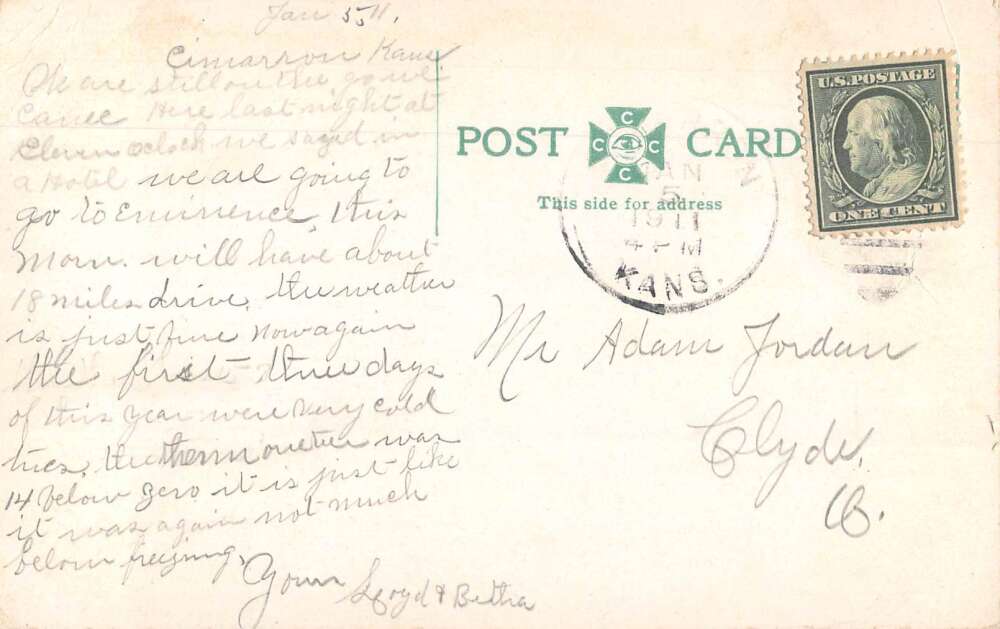 Jan 5, 11.
Cimarron Kans
We are still on the go we
Came Here last night at
Eleven oclock we stayed in
a Hotel we are going to
go to Eminence this
Morn. will have about
18 miles drive, the weather
is just fine now again
the first three days
of this year were very cold
the thermometer was
14 below zero it is just like
it was again not much
below freezing,
Yours Lloyd & Betha
POST CARD
C C C C
This side for address
JAN
5
1911
4 PM
KANS.
U.S. POSTAGE
ONE CENT
Mr Adam Jordan
Clyde,
O.